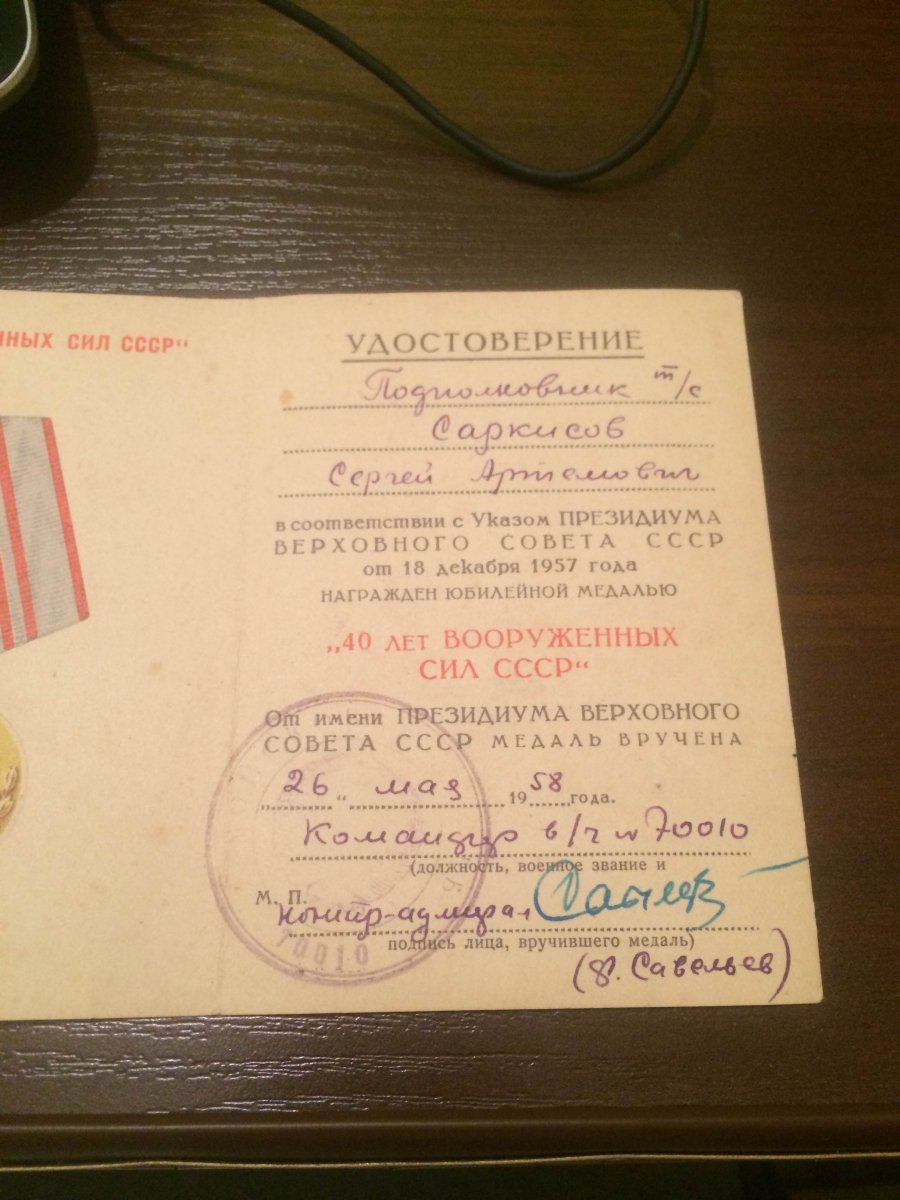 ННЫХ СИЛ СССР"
УДОСТОВЕРЕНИЕ
Подполковник т/с
Саркисов
Сергей Артемович
в соответствии с Указом ПРЕЗИДИУМА
ВЕРХОВНОГО СОВЕТА СССР
от 18 декабря 1957 года
НАГРАЖДЕН ЮБИЛЕЙНОЙ МЕДАЛЬЮ
„40 ЛЕТ ВООРУЖЕННЫХ
СИЛ СССР"
От имени ПРЕЗИДИУМА ВЕРХОВНОГО
СОВЕТА СССР МЕДАЛЬ ВРУЧЕНА
„26" мая 1958 года.
Командир в/ч № 70010
(должность, военное звание и
М. П.
контр-адмирал
подпись лица, вручившего медаль)
70010
(Ф. Савельев)